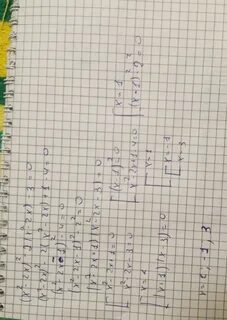 (x²-2x)²-2(x²-2x)-3=0
(x²-2x)²-2(x²-2x)+1-4=0
(x²-2x-1)²-4=0
(x²-2x-1)²-2²=0
(x²-2x+1)(x²-2x-3)=0
x²-2x+1=0 (x-1)²=0 x=1
x²-2x-3=0 x²-2x+1-4=0 (x-1)²-2²=0
x=1 x=1
(x+1)(x-3)=0 x=-1
x=3